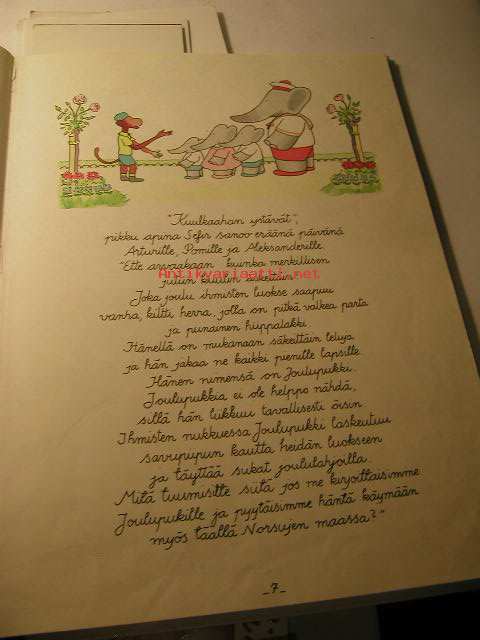 "Kuulkaahan ystävät",
pikku apina Sefir sanoo eräänä päivänä
Arturille, Pomille ja Aleksanderille.
"Ette arvaakaan kuinka merkillisen
jutun kuulin äskettäin.
Antikvariaatti.net
Joka joulu ihmisten luokse saapuu
vanha, kiltti herra, jolla on pitkä valkea parta
ja punainen hiippalakki.
Hänellä on mukanaan säkeittäin leluja
ja hän jakaa ne kaikki pienille lapsille.
Hänen nimensä on Joulupukki.
Joulupukkia ei ole helppo nähdä,
sillä hän liikkuu tavallisesti öisin.
Ihmisten nukkuessa Joulupukki laskeutuu
savupiipun kautta heidän luokseen
ja täyttää sukat joululahjoilla.
Mitä tuumisitte siitä jos me kirjoittaisimme
Joulupukille ja pyytäisimme häntä käymään
myös täällä Norsujen maassa?"
_7_